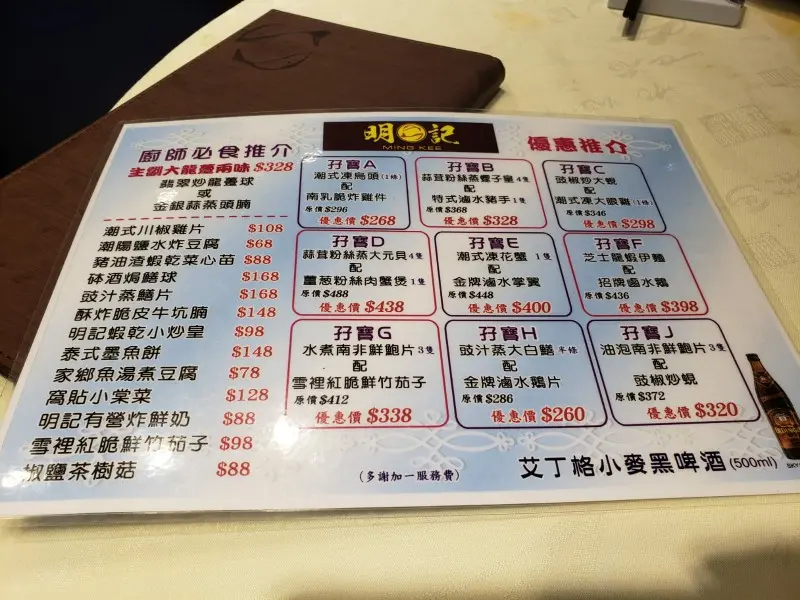 明記
MING KEE
廚師必食推介
生劏大龍躉兩味 $328
翡翠炒龍躉球
或
金銀蒜蒸頭腩
潮式川椒雞片 $108
潮陽鹽水炸豆腐 $68
豬油渣蝦乾菜心苗 $88
砵酒焗鱔球 $168
豉汁蒸鱔片 $168
酥炸脆皮牛坑腩 $148
明記蝦乾小炒皇 $98
泰式墨魚餅 $148
家鄉魚湯煮豆腐 $78
窩貼小棠菜 $128
明記有營炸鮮奶 $88
雪裡紅脆鮮竹茄子 $98
椒鹽茶樹菇 $88
優惠推介
孖寶A
潮式凍烏頭(1條)
配
南乳脆炸雞件
原價$296
優惠價 $268
孖寶B
蒜茸粉絲蒸蟶子皇4隻
配
特式滷水豬手1隻
原價$368
優惠價 $328
孖寶C
豉椒炒大蜆
配
潮式凍大眼雞(1條)
原價$346
優惠價 $298
孖寶D
蒜茸粉絲蒸大元貝4隻
配
薑葱粉絲肉蟹煲1隻
原價$488
優惠價 $438
孖寶E
潮式凍花蟹 1隻
配
金牌滷水掌翼
原價$448
優惠價 $400
孖寶F
芝士龍蝦伊麵
配
招牌滷水鵝
原價$436
優惠價 $398
孖寶G
水煮南非鮮鮑片3隻
配
雪裡紅脆鮮竹茄子
原價$412
優惠價 $338
孖寶H
豉汁蒸大白鱔 半條
配
金牌滷水鵝片
原價$286
優惠價 $260
孖寶J
油泡南非鮮鮑片3隻
配
豉椒炒蜆
原價$372
優惠價 $320
(多謝加一服務費)
艾丁格小麥黑啤酒(500ml)